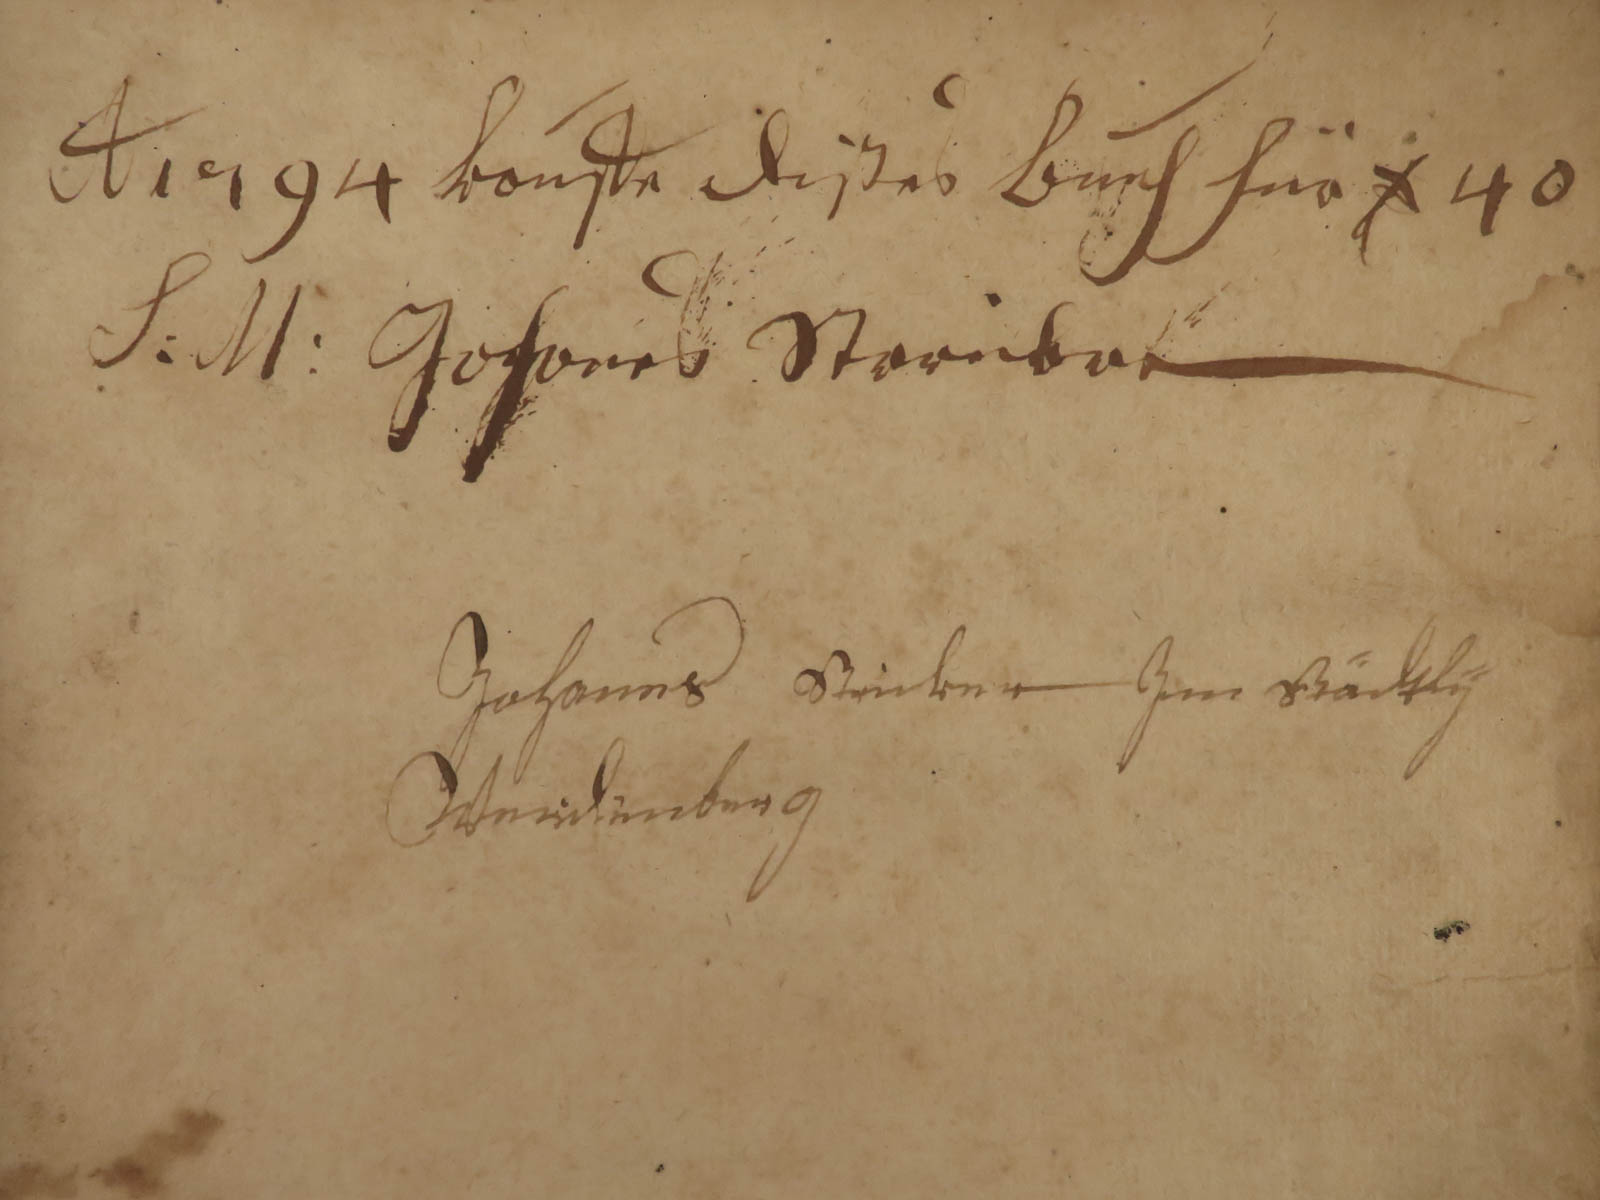 A 1794 kaufte dises Buch für x 40
S: M: Johanes Stricker
Johannes Stricker Im Städtly
Werdenberg